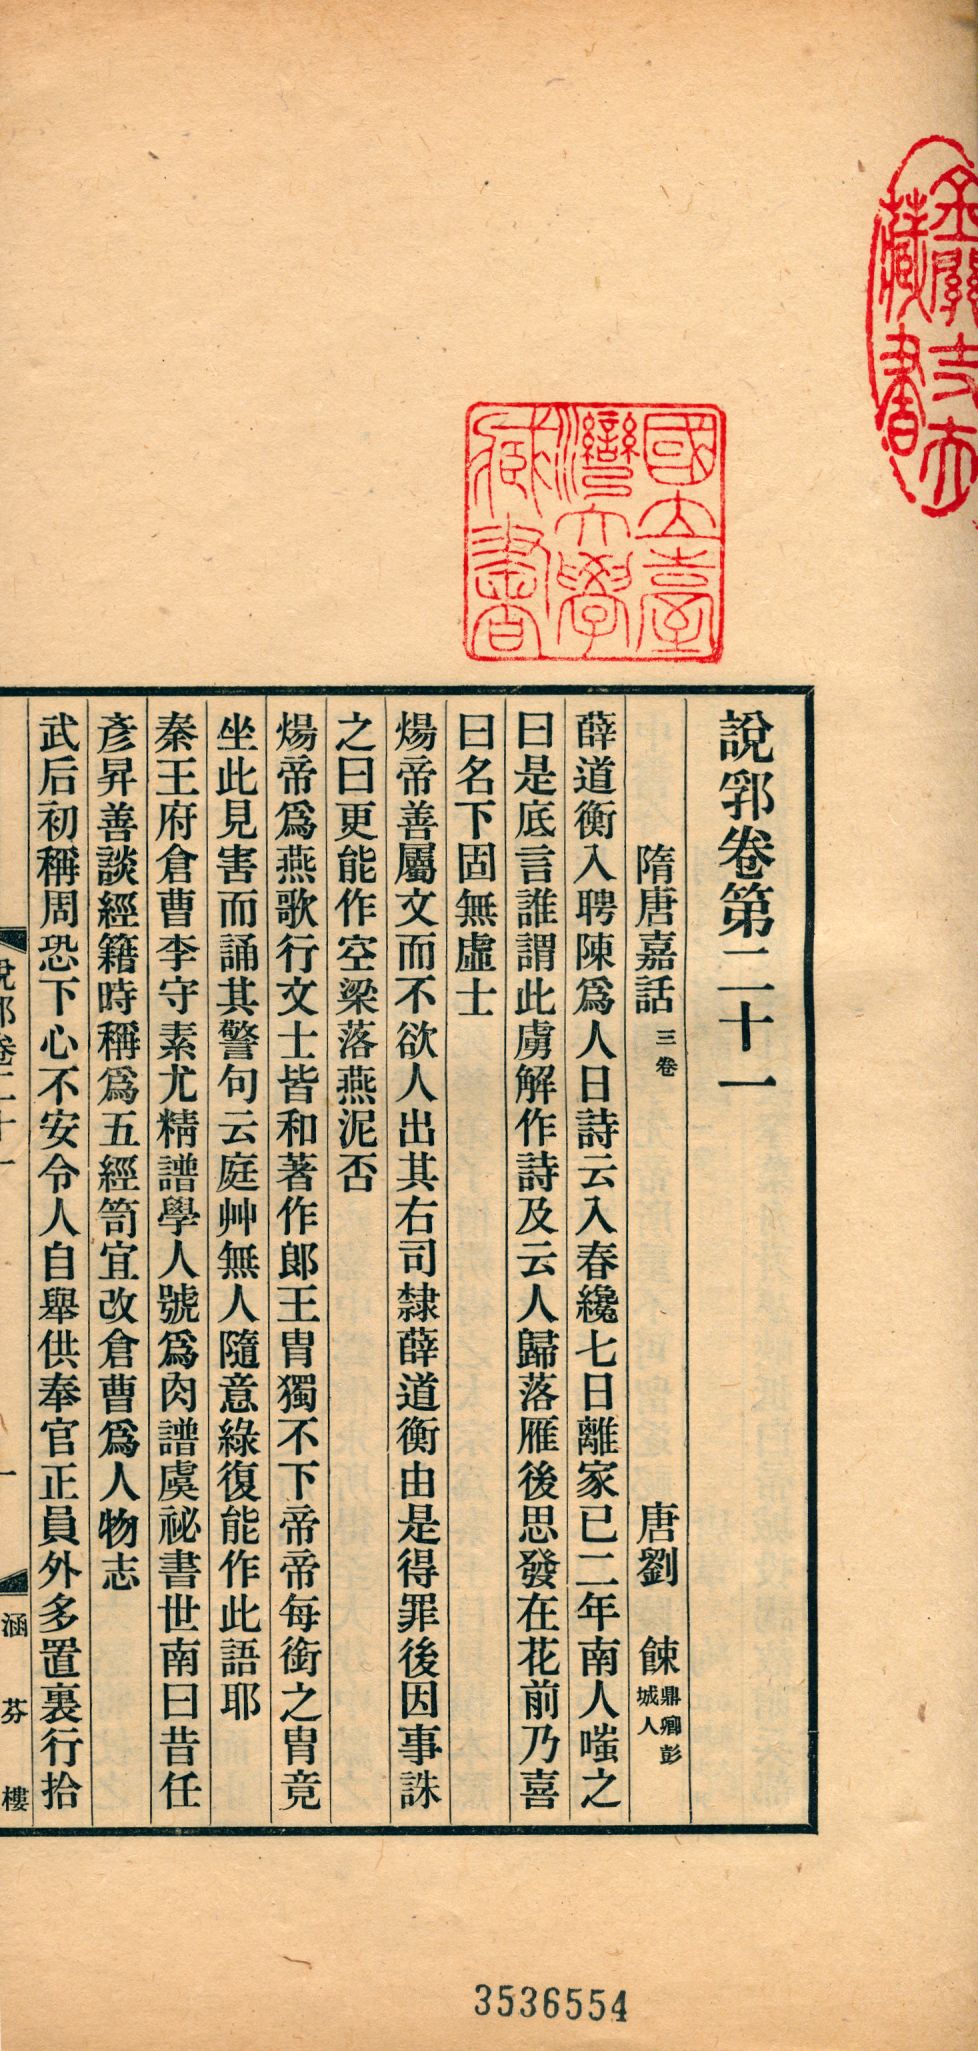 說郛卷第二十一
隋唐嘉話 三卷 唐劉 餗 鼎卿彭城人
薛道衡入聘陳爲人日詩云入春纔七日離家已二年南人嗤之
曰是底言誰謂此虜解作詩及云人歸落雁後思發在花前乃喜
曰名下固無虛士
煬帝善屬文而不欲人出其右司隸薛道衡由是得罪後因事誅
之曰更能作空梁落燕泥否
煬帝爲燕歌行文士皆和著作郎王胄獨不下帝帝每銜之胄竟
坐此見害而誦其警句云庭艸無人隨意綠復能作此語耶
秦王府倉曹李守素尤精譜學人號爲肉譜虞祕書世南曰昔任
彥昇善談經籍時稱爲五經笥宜改倉曹爲人物志
武后初稱周恐下心不安令人自舉供奉官正員外多置裏行拾
說郛卷二十一 一 涵芬樓
國立臺灣大學藏書
藏書
3536554